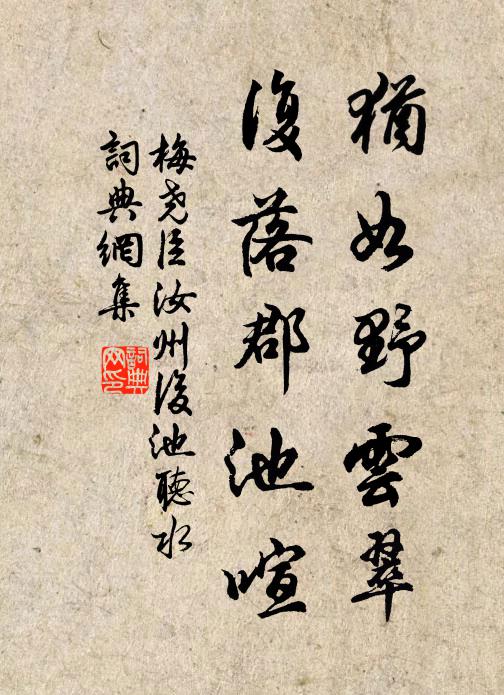 猶如野雲翠
復落郡池喧
梅堯臣汝州後池聽水
詞典網集
詞典網印